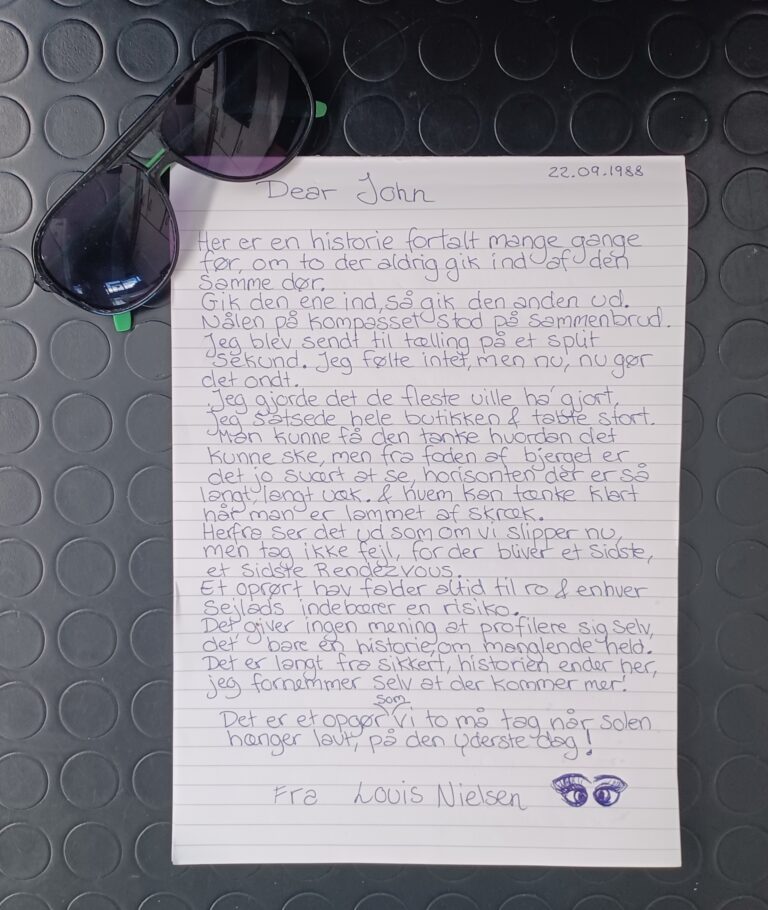 22.09.1988
Dear John
Her er en historie fortalt mange gange
før, om to der aldrig gik ind af den
samme dør.
Gik den ene ind, så gik den anden ud.
Nålen på kompasset stod på sammenbrud.
Jeg blev sendt til tælling på et split
sekund. Jeg følte intet, men nu, nu gør
det ondt.
Jeg gjorde det de fleste ville ha' gjort,
Jeg satsede hele butikken & tabte stort.
Man kunne få den tanke hvordan det
kunne ske, men fra foden af bjerget er
det jo svært at se, horisonten der er så
langt, langt væk. & hvem kan tænke klart
når man er lammet af skræk.
Herfra ser det ud som om vi slipper nu,
men tag ikke fejl, for der bliver et sidste,
et sidste Rendezvous.
Et oprørt hav falder altid til ro & enhver
sejlads indebærer en risiko.
Det giver ingen mening at profilere sig selv,
det' bare en historie, om manglende held.
Det er langt fra sikkert, historien ender her,
jeg fornemmer selv at der kommer mer!
Det er et opgør som vi to må tag når solen
hænger lavt, på den yderste dag!
Fra Louis Nielsen